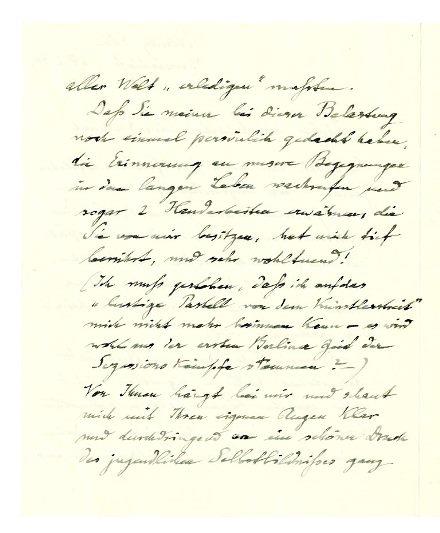 aller Welt „erledigen" mußten.
Daß Sie meiner bei dieser Belastung
noch einmal persönlich gedacht haben,
die Erinnerung an unsere Begegnungen
in dem langen Leben wachrufen und
sogar 2 Handarbeiten erwähnen, die
Sie von mir besitzen, hat mich tief
berührt, und sehr wohltuend!
(Ich muß gestehen, daß ich auf das
„lustige Pastell von dem Künstlerstreit"
mich nicht mehr besinnen kann – es wird
wohl aus der ersten Berliner Zeit der
Sezessions Kämpfe stammen? –)
Von Ihnen hängt bei mir und schaut
mich mit Ihren eigenen Augen klar
und durchdringend an ein schöner Druck
des jugendlichen Selbstbildnißes ganz